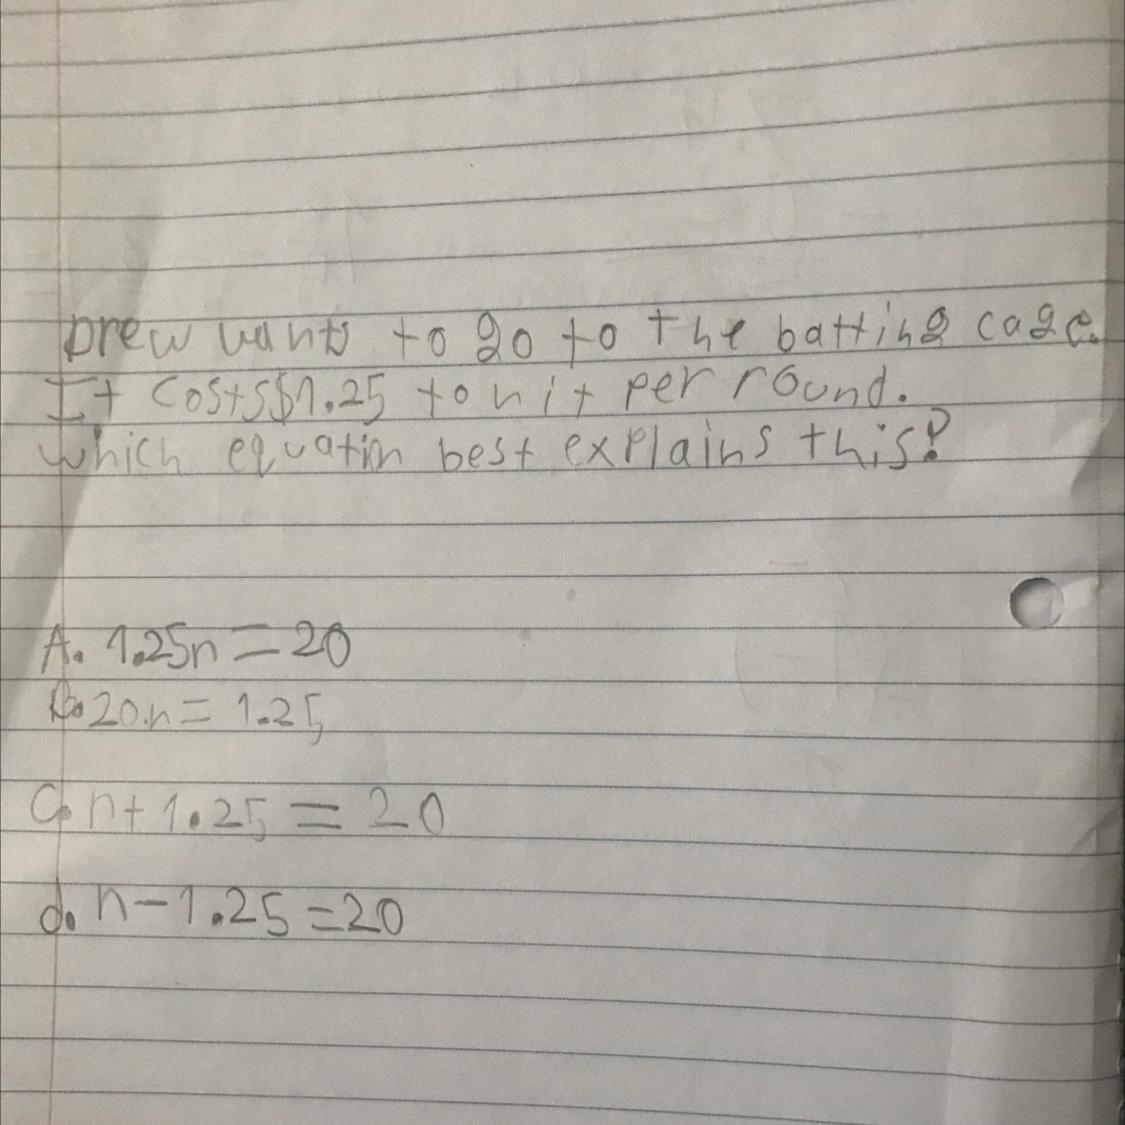 Drew wants to go to the batting cage.
It costs $1.25 to hit per round.
which equation best explains this?
A. 1.25n = 20
B. 20.n = 1.25
C. n + 1.25 = 20
d. n - 1.25 = 20